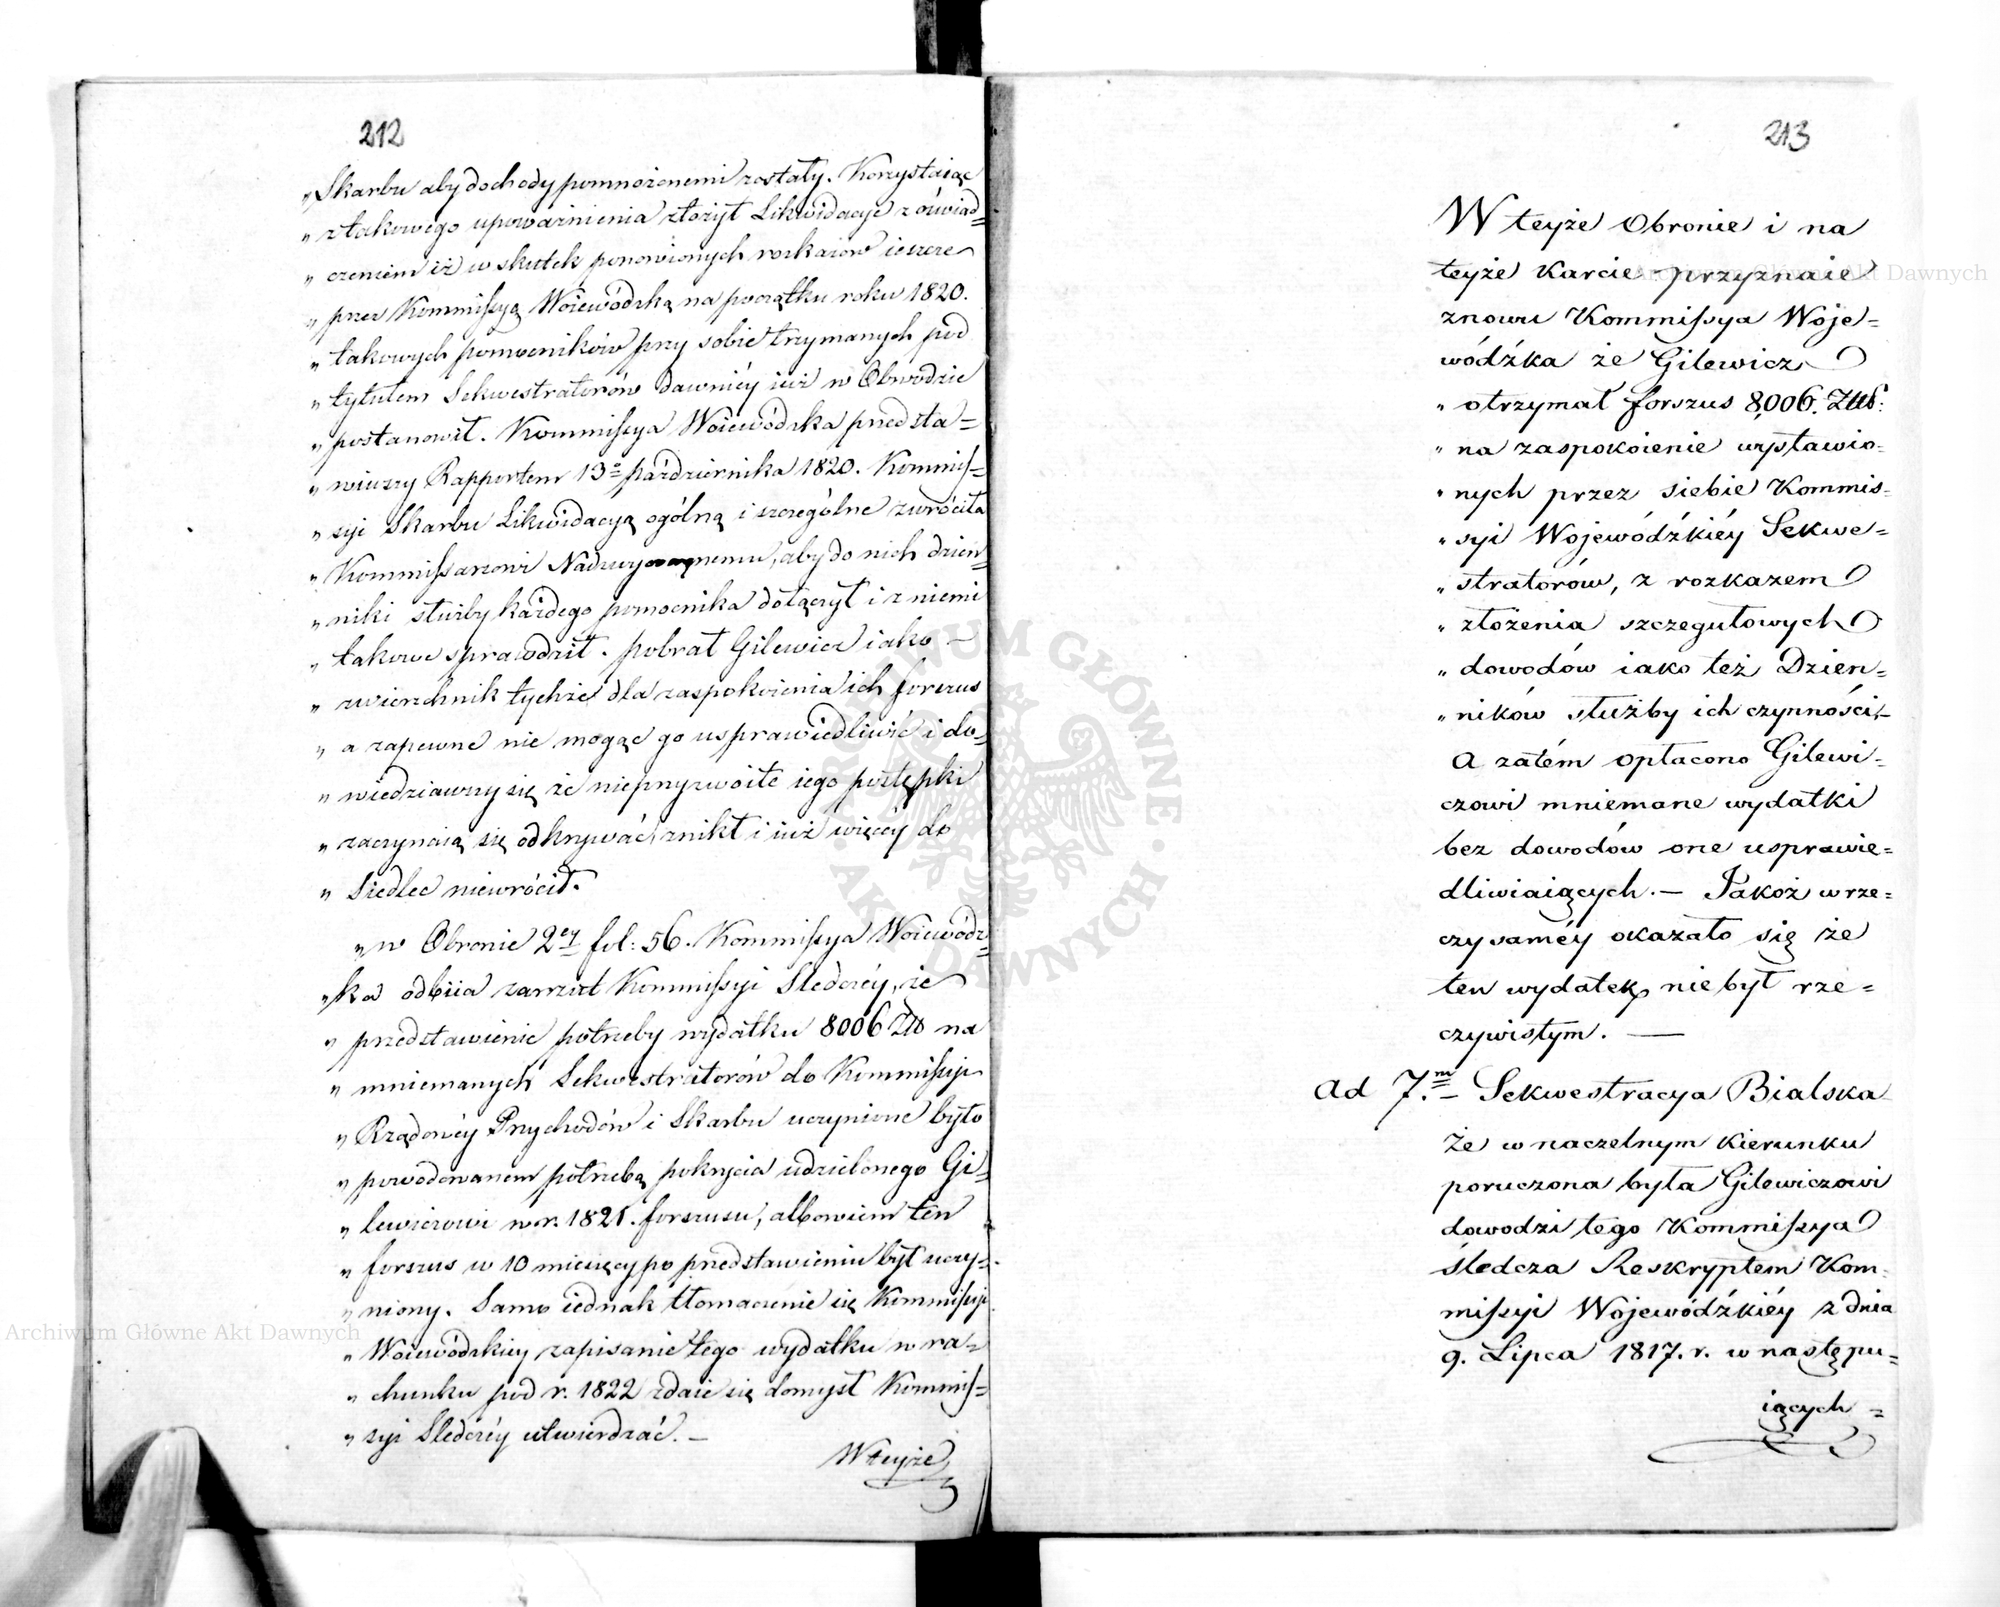 212
„ Skarbu aby dochody pomnożonemi zostały. Korzystaiąc
„ z takowego upoważnienia złożył Likwidacye z oświad=
„ czeniem iż w skutek ponowionych rozkazów ieszcze
„ przez Kommissyą Woiewódzką na początku roku 1820.
„ takowych pomocników przy sobie trzymanych pod
„ tytułem Sekwestratorów dawniéy iuż w Obwodzie
„ postanowił. Kommissya Woiewódzka przedsta=
„ wiwszy Rapportem 13º Października 1820. Kommis=
„ syi Skarbu Likwidacyą ogólną i szczególne zwróciła
„ Kommissarzowi Nadzwyczaynemu, aby do nich dzien=
„ niki służby każdego pomocnika dołączył i z niemi
„ takowe sprawdził. pobrał Gilewicz iako —
„ zwierzchnik tychże dla zaspokoienia ich forszus
„ a zapewne nie mogąc go usprawiedliwić i do=
„ wiedziawszy się że nieprzyzwoite iego postępki
„ zaczynaią się odkrywać, znikł i iuż więcéy do
„ Siedlec niewrócił.
„ w Obronie 2ey fol: 56. Kommissya Woiewódz=
„ ka odbiia zarzut Kommissyi Śledczéy, że
„ przedstawienie potrzeby wydatku 8006 Złł na
„ mniemanych Sekwestratorów do Kommissyi
„ Rządowéy Przychodów i Skarbu uczynione było
„ powodowanem potrzebą pokrycia udzielonego Gi=
„ lewiczowi w r. 1821. forszusu, albowiem ten
„ forszus w 10 miesięcy po przedstawieniu był uczy=
„ niony. Samo iednak tłomaczenie się Kommissyi
„ Woiewódzkiey zapisanie tego wydatku w ra=
„ chunku pod r. 1822 zdaie się domysł Kommis=
„ syi Śledczéy utwierdzać. —
W teyże
213
W teyże Obronie i na
teyże karcie przyznaie
znowu Kommissya Woje=
wódźka że Gilewicz
„ otrzymał forszus 8,006. Złł:
„ na zaspokoienie wystawio=
„ nych przez siebie Kommis=
„ syi Wojewódźkiéy Sekwe=
„ stratorów, z rozkazem
„ złożenia szczegułowych
„ dowodów iako też Dzien=
„ ników służby ich czynności,—
A zatém opłacono Gilewi=
czowi mniemane wydatki
bez dowodów one usprawie=
dliwiaiących. — Jakoż w rze=
czy saméy okazało się że
ten wydatek nie był rze=
czywistym. —
Ad 7.m — Sekwestracya Bialska
Że w naczelnym kierunku
poruczona była Gilewiczowi
dowodzi tego Kommissya
śledcza Reskryptem Kom=
missyi Wojewódźkiéy z dnia
9. Lipca 1817. r. w następu=
iących =
Archiwum Główne Akt Dawnych
Archiwum Główne Akt Dawnych
ARCHIWUM GŁÓWNE · AKT DAWNYCH ·